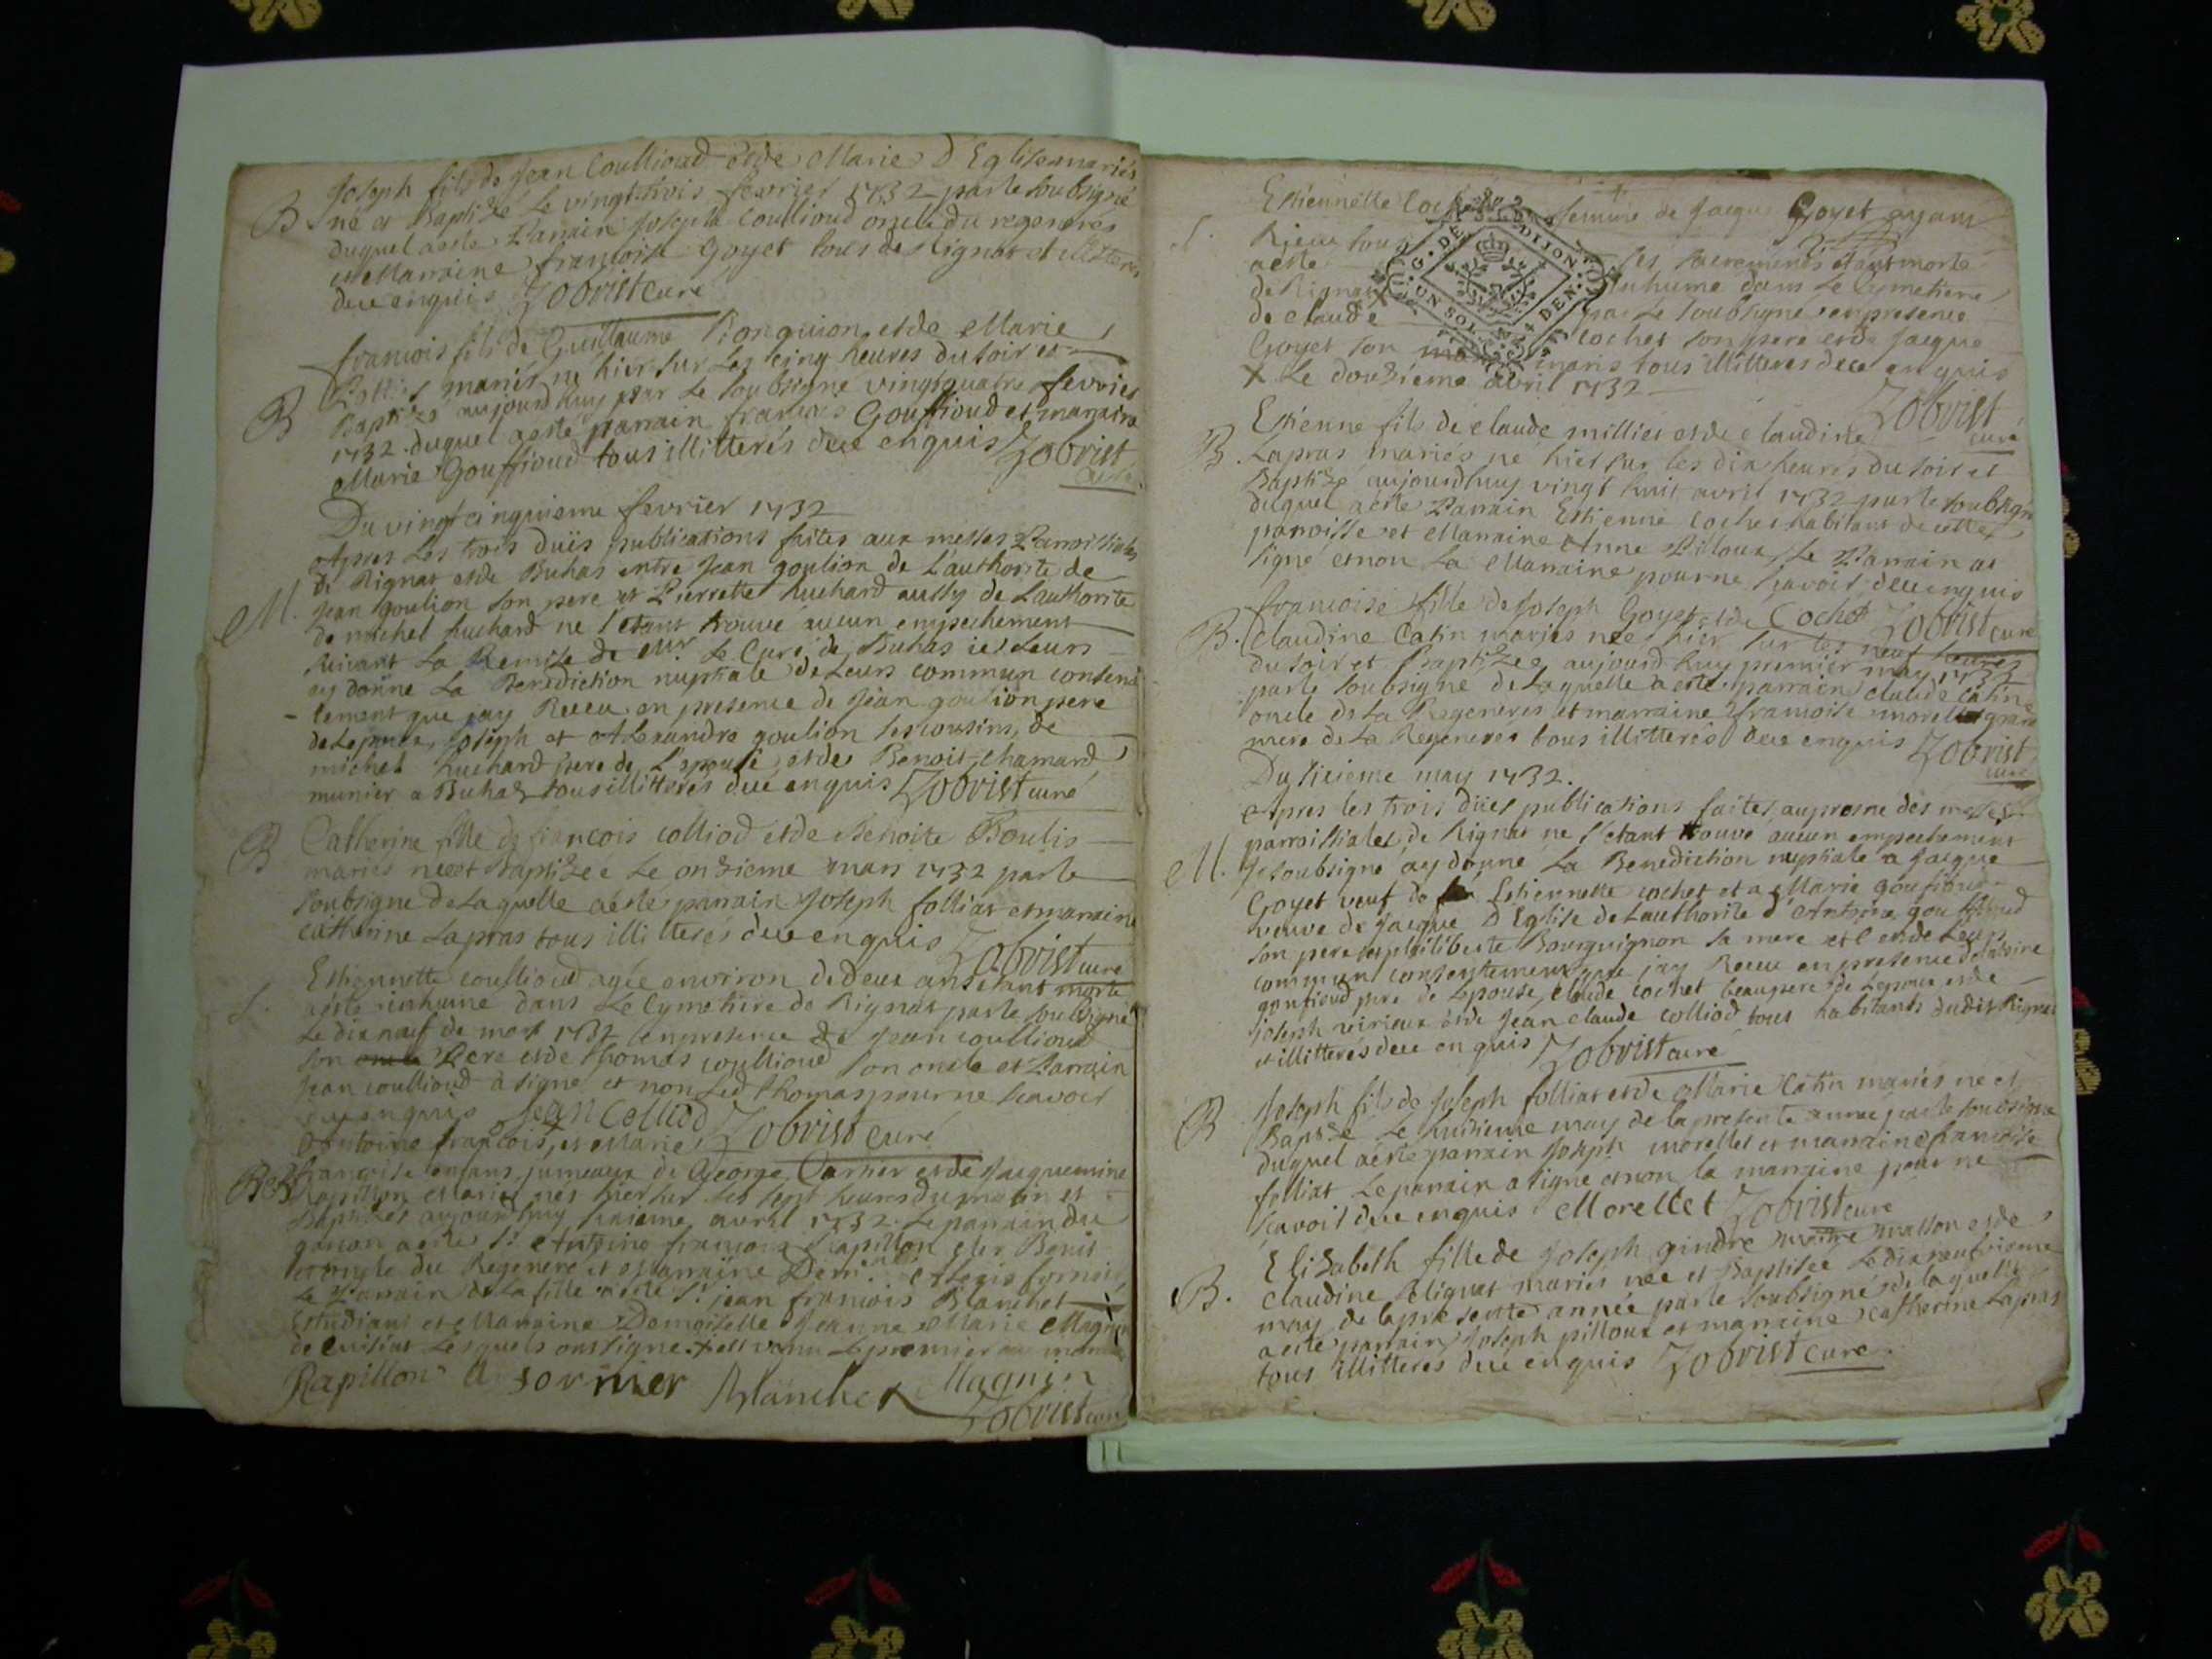 Joseph fils de Jean Coullioud et de Marie D Eglise mariés
B né et Baptisé Le vingt trois fevrier 1732 par le soubsigné
duquel a esté Parrain Joseph Coullioud oncle du regeneré
et Marraine françoise Goyet tous de Rignat et illitterés
de ce enquis Zobrist curé
francois fils de Guillaume Ronguion et de Marie
mariés né hier sur Les cinq heures du soir et
B Baptizé aujourd huy par Le soubsigné vingt quatre fevrier
1732. duquel a esté parrain francois Gouffioud et marraine
Marie Gouffioud tous illitterés de ce enquis Zobrist
curé
Du vingt cinquieme fevrier 1732
Apres Les trois duës publications faites aux messes Parroissiales
de Rignat et de Buhas entre Jean goulion de L'authorité de
M. Jean goulion son pere et Pierrette Ruchard aussy de L'authorité
de michel Ruchard ne s'etant trouvé aucun empechement
suivant La Remise de Mr Le Curé de Buhas je Leurs
ay donné La Benediction nuptiale de Leurs commun consen
- tement que jay Receu en presence de Jean goulion pere
de Lepoux, Joseph et Alexandre goulion ses cousins, de
michel Ruchard pere de L'epouse et de Benoit Chamard
munier a Buhas tous illitterés de ce enquis Zobrist curé
B Catherine fille de françois colliod et de Benoite Boulis
mariés née et Baptizée Le onzieme mars 1732 par le
soubsigné de Laquelle a esté parrain Joseph folliat et marraine
catherine Lapras tous illitterés de ce enquis Zobrist curé
S. Estiennette coullioud agée environ de deux ans étant morte
a esté inhumé dans Le Cymetiere de Rignat par le soubsigné
Le dix neuf de mars 1732 en presence de Jean coullioud
son Pere et de Thomas coullioud son oncle et Parrain
Jean coullioud a signé et non Led Thomas pour ne scavoir
enquis Jean Colliod Zobrist curé
Antoine francois, et Marie
BB françoise enfans jumeaux de George Carrier et de Jacquemine
Rapillon mariés nés hier sur les sept heures du matin et
Baptizés aujourd huy sixieme avril 1732. Le parrain du
garcon a esté Sr Antoine francois Rapillon clerc Benit
et oncle du Regeneré et Marraine Dem.lle Alexis fornier
Le Parrain de La fille a esté Sr jean francois Blanchet
Estudiant et Marraine Demoiselle Jeanne Marie Magnin
de Cuisiat Lesquels ont signé
Rapillon A fornier Blanchet Magnin
Zobrist curé
Estiennette Coch femme de Jacque Goyet ayant
S. Rieux tous les sacrements étant morte
a esté inhumé dans Le Cymetiere
de Rignat X par Le soubsigné en presence
de claude cochet son pere et de Jacque
Goyet son maris tous illitterés de ce enquis
X Le douzieme avril 1732
G. DE DIJON
UN SOL 4 DEN.
Zobrist
curé
Estienne fils de claude millier et de claudine
B. Lapras mariés né hier sur les dix heures du soir et
Baptizé aujourdhuy vingt huit avril 1732 par le soubsigné
duquel a esté Parrain Estienne Cochet habitant de cette
parroisse et Marraine Anne Pilloux, Le Parrain a
signé et non La Marraine pour ne scavoir de ce enquis
Cochet Zobrist curé
francoise fille de Joseph Goyet et de
B. Claudine Catin mariés née hier sur les neuf heures
du soir et Baptizée aujourd huy premier may 1732
par le soubsigné de Laquelle a esté parrain claude catin
oncle de La Regenerée et marraine francoise morellet grand
mere de La Regenerée tous illitterés de ce enquis Zobrist
curé
Du sixieme may 1732.
Apres les trois duës publications faites au prosne des messes
parroissiales de Rignat ne s'etant trouvé aucun empechement
M. Je soubsigné ay donné La Benediction nuptiale a Jacque
Goyet veuf de Estiennette cochet et a Marie goufioud
veuve de Jacque D Eglise de L'authorité d'Antoine goufioud
son pere et philiberte Bourguignon sa mere et de Leurs
commun consentement que jay Receu en presence d'antoine
goufioud pere de Lepouse, claude cochet beaupere de Lepoux et de
joseph verieux et de Jean claude colliod tous habitants dudit Rignat
et illitterés de ce enquis Zobrist curé
B Joseph fils de Joseph folliat et de Marie Catin mariés né et
Baptizé Le huitieme may de la presente année par le soubsigné
duquel a esté parrain Joseph morellet et marraine francoise
folliat Le parrain a signé et non la marraine pour ne
scavoir de ce enquis Morellet Zobrist curé
Elisabeth fille de Joseph gindre maitre masson et de
B. claudine Rlignat mariés née et Baptisée Le dix neufvieme
may de la presente année par le soubsigné de laquelle
a esté parrain Joseph pilloux et marraine catherine Lapras
tous illitterés de ce enquis Zobrist curé